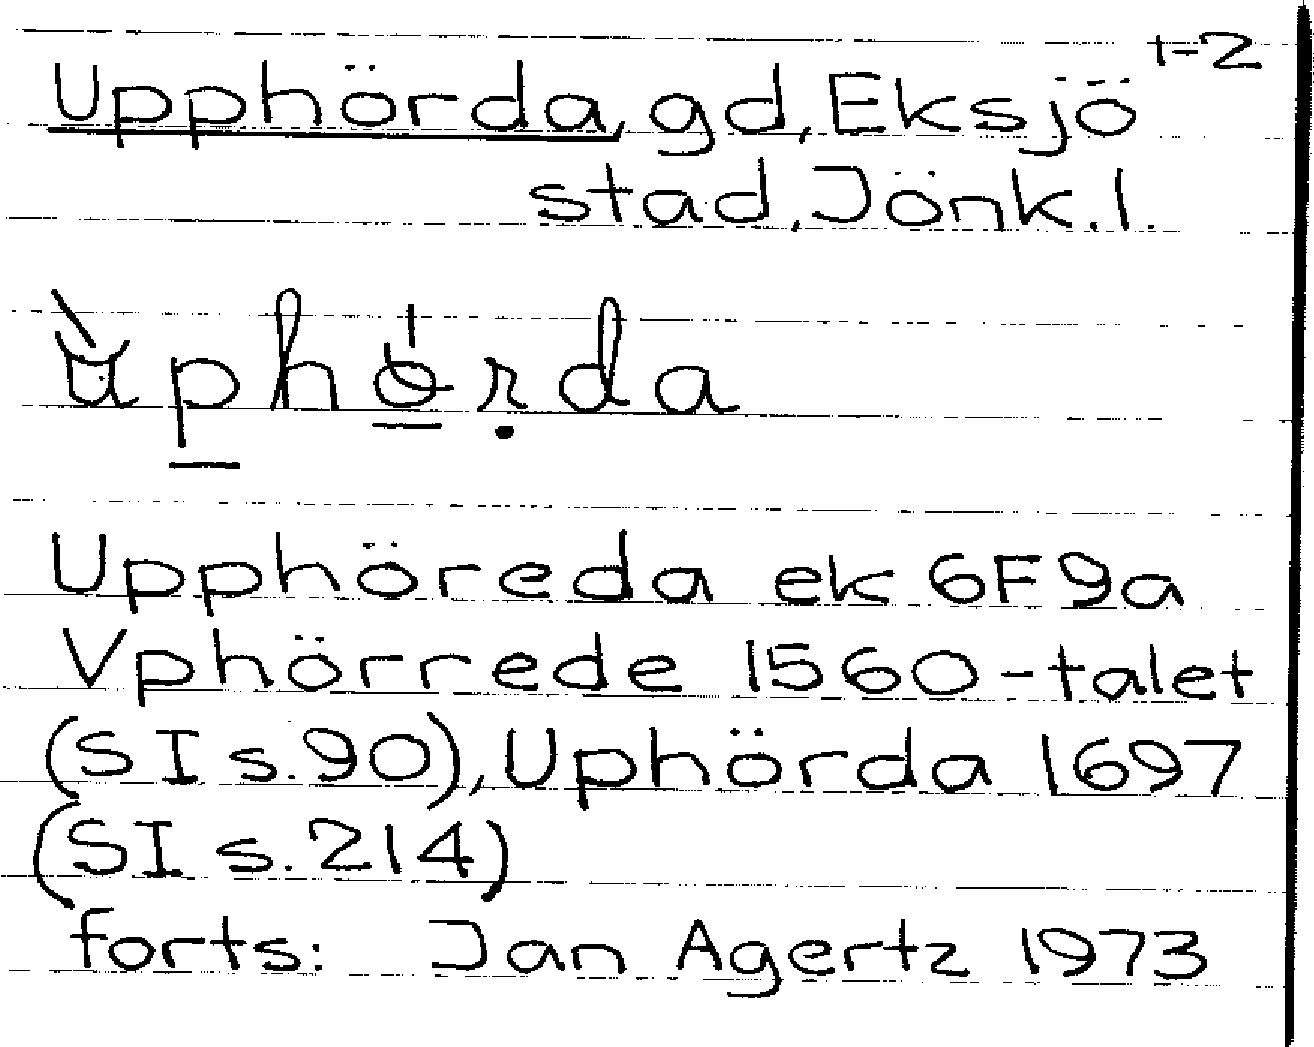 1-2
Upphörda, gd, Eksjö
stad, Jönk. l.
ùphörda
Upphöreda ek 6F9a
Vphörrede 1560-talet
(SI s. 90), Uphörda 1697
(SI s. 214)
forts: Jan Agertz 1973